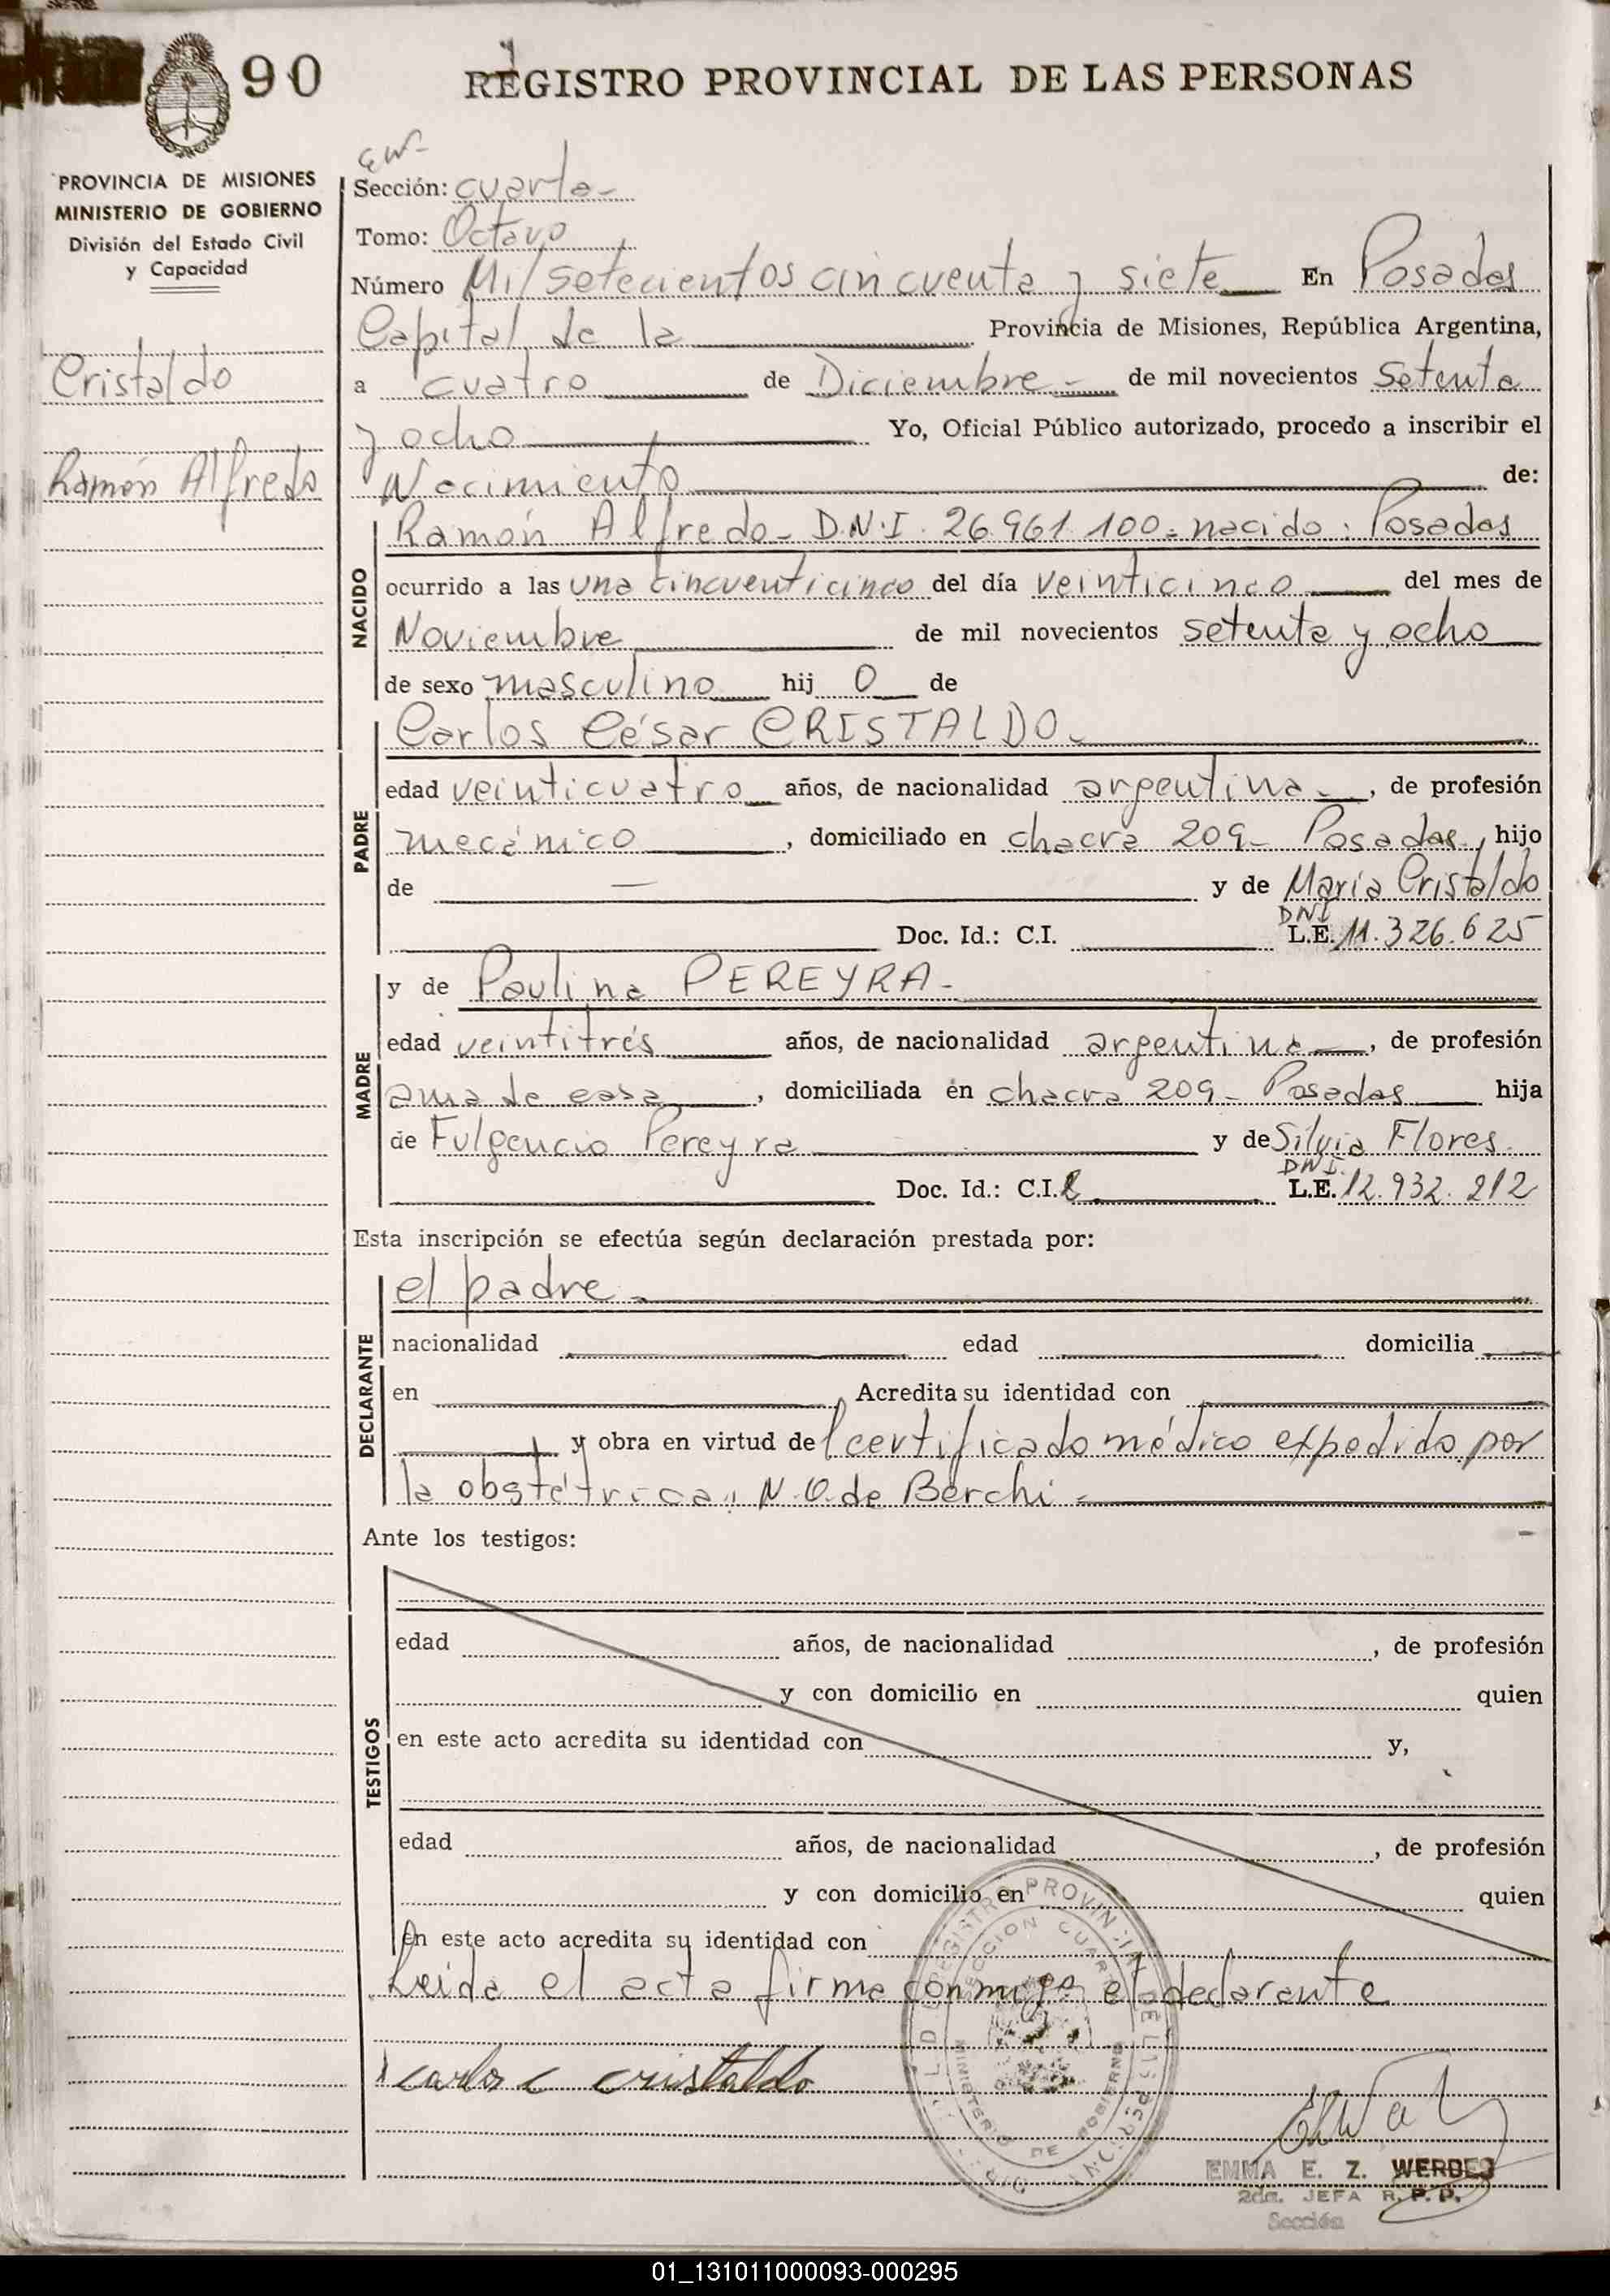 90
REGISTRO PROVINCIAL DE LAS PERSONAS
PROVINCIA DE MISIONES
MINISTERIO DE GOBIERNO
División del Estado Civil
y Capacidad
Cristaldo
Ramón Alfredo
Sección: cuarta-
Tomo: Octavo
Número Mil setecientos cincuenta y siete En Posadas
Capital de la Provincia de Misiones, República Argentina,
a cuatro de Diciembre- de mil novecientos setenta
y ocho Yo, Oficial Público autorizado, procedo a inscribir el
Nacimiento de:
NACIDO
Ramón Alfredo- D.N.I. 26.961.100= nacido: Posadas
ocurrido a las una cincuenticinco del día veinticinco del mes de
Noviembre de mil novecientos setenta y ocho
de sexo masculino hij o de
PADRE
Carlos César CRISTALDO-
edad veinticuatro años, de nacionalidad argentina-, de profesión
mecánico, domiciliado en chacra 209- Posadas, hijo
de — y de María Cristaldo
Doc. Id.: C.I. DNI L.E. 11.326.625
MADRE
y de Paulina PEREYRA-
edad veintitrés años, de nacionalidad argentina-, de profesión
ama de casa, domiciliada en chacra 209- Posadas hija
de Fulgencio Pereyra y de Silvia Flores.
Doc. Id.: C.I. DNI. L.E. 12.932.212
Esta inscripción se efectúa según declaración prestada por:
DECLARANTE
el padre-
nacionalidad edad domicilia
en Acredita su identidad con
y obra en virtud del certificado médico expedido por
la obstétrica, N.O. de Berchi-
Ante los testigos:
TESTIGOS
edad años, de nacionalidad , de profesión
y con domicilio en quien
en este acto acredita su identidad con y,
edad años, de nacionalidad , de profesión
y con domicilio en quien
en este acto acredita su identidad con
Leida el acta firma conmigo el declarante
carlos c cristaldo
REGISTRO PROVINCIAL DE LAS PERSONAS
SECCION CUARTA
MINISTERIO DE GOBIERNO
EMMA E. Z. WERBES
2da. JEFA R. P. P.
Sección
01_131011000093-000295